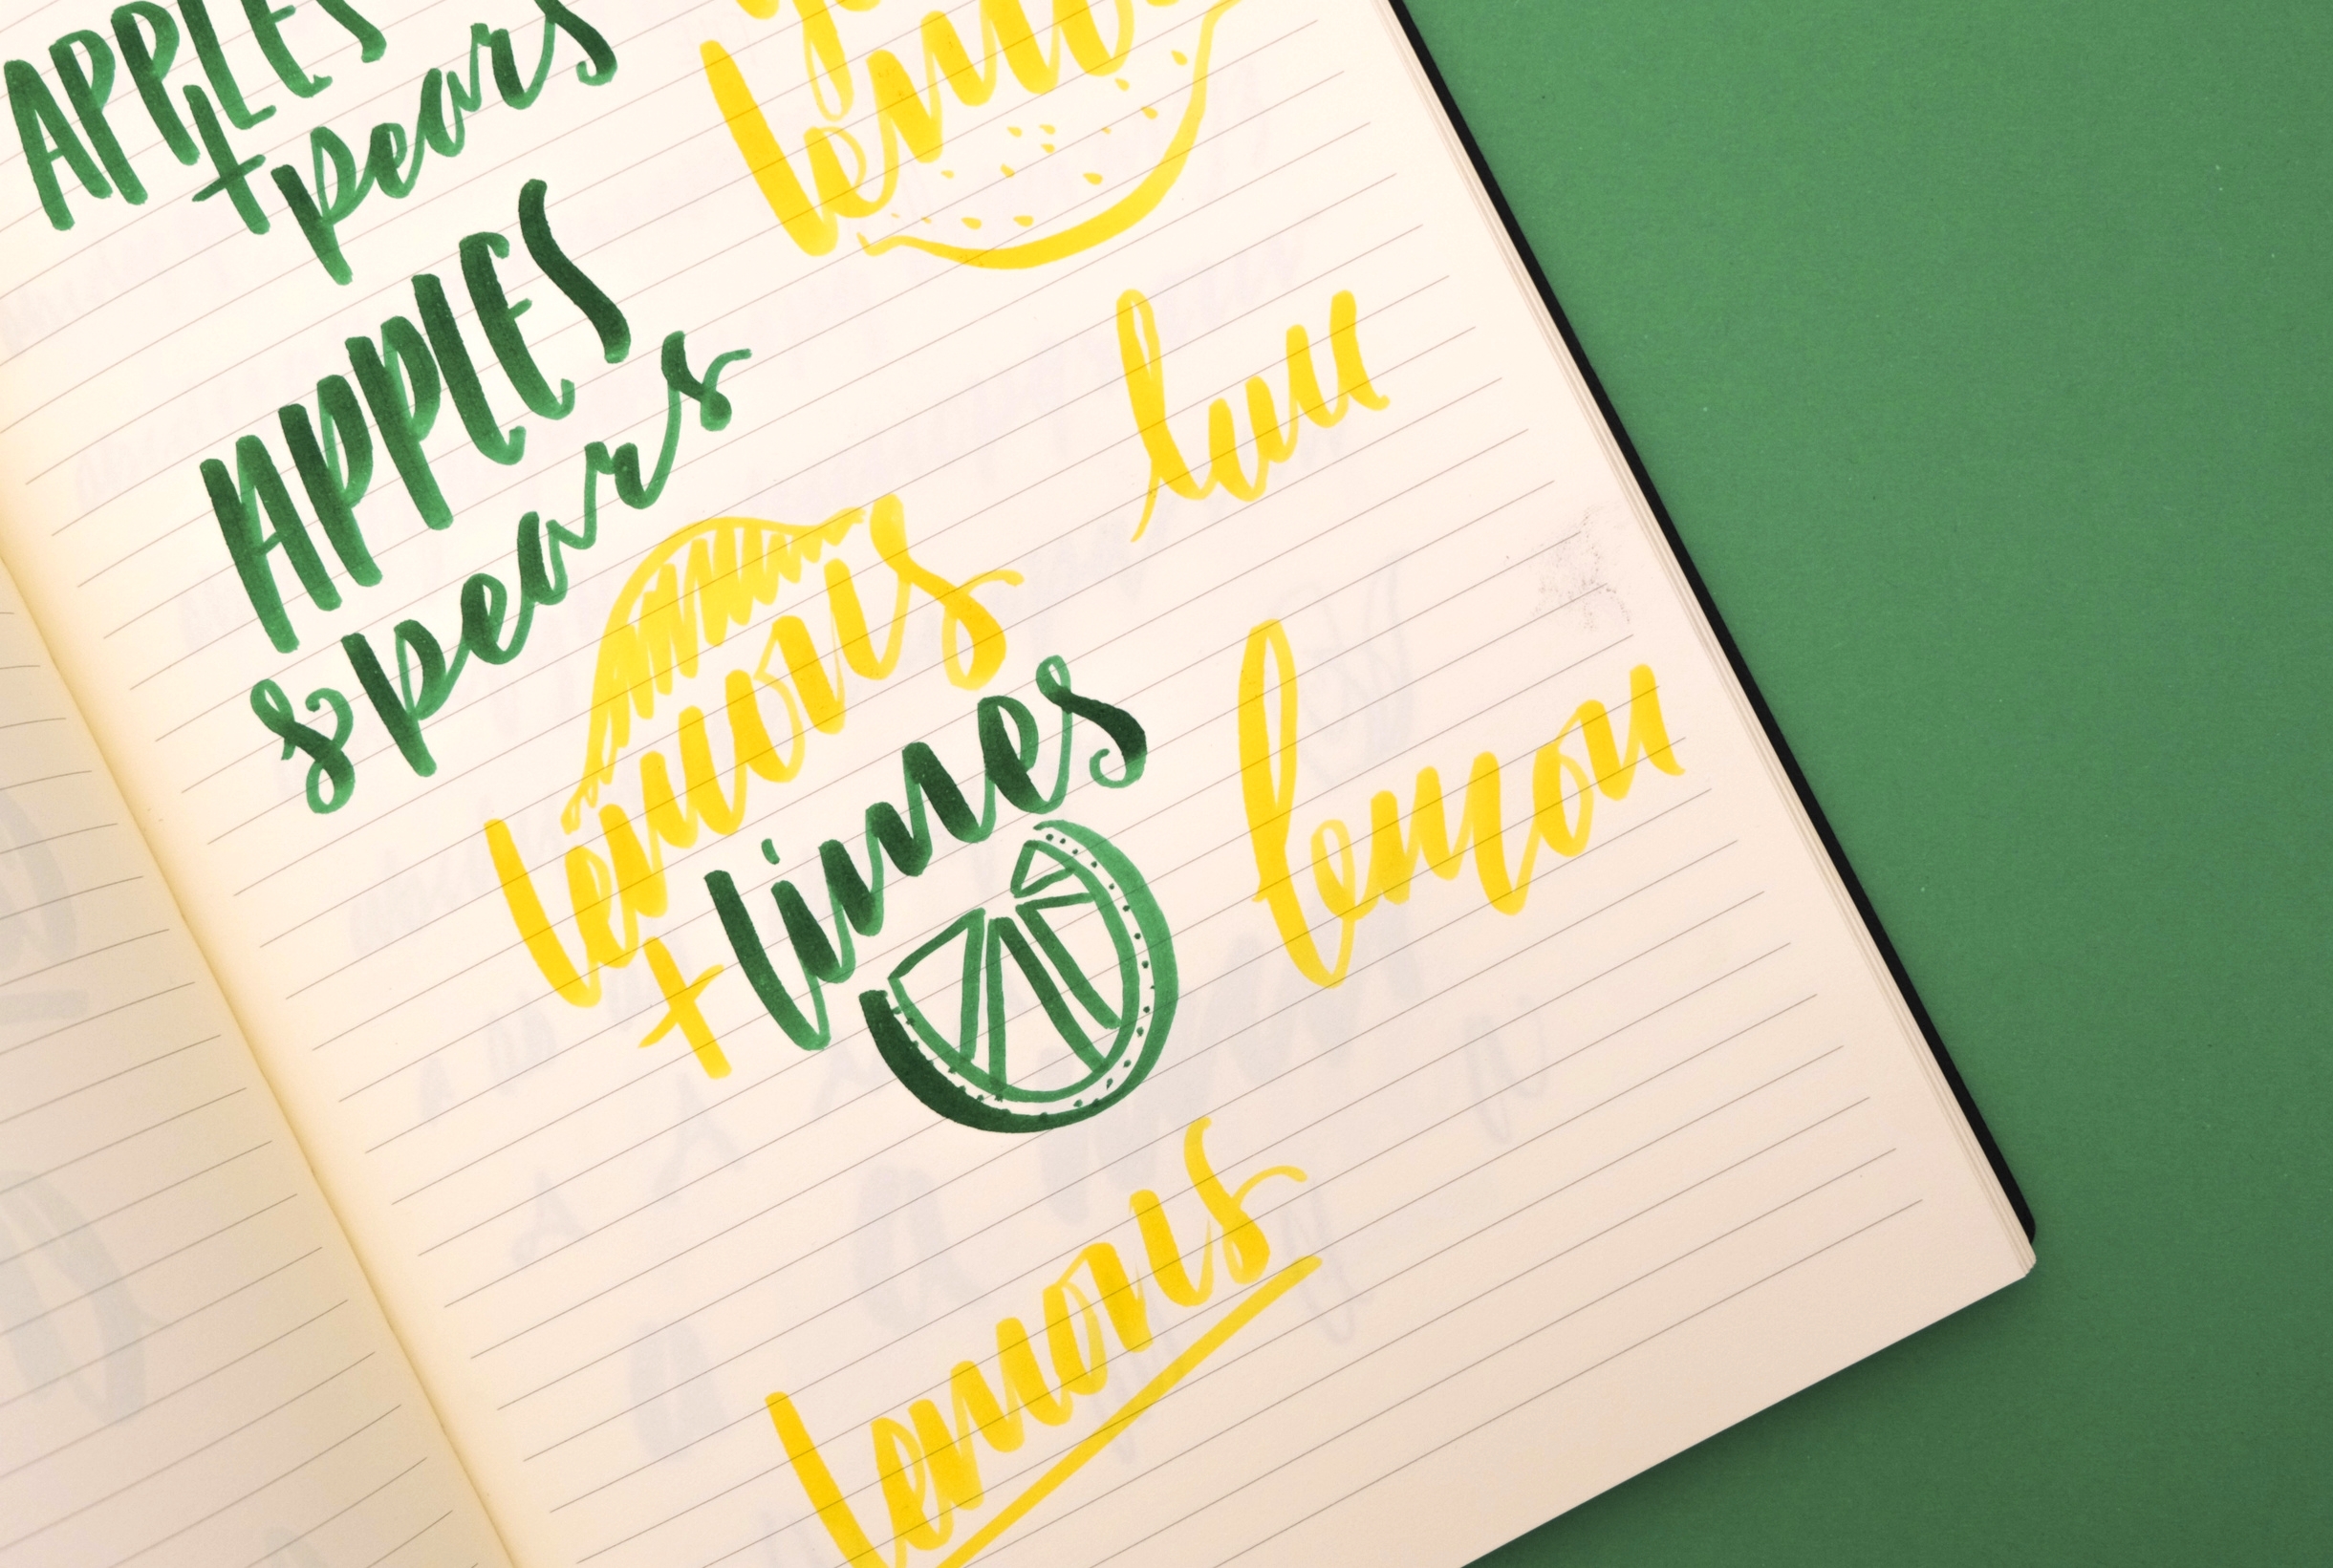 APPLES
+ pears
APPLES
& pears
lemons
+ limes
lemon
lemons